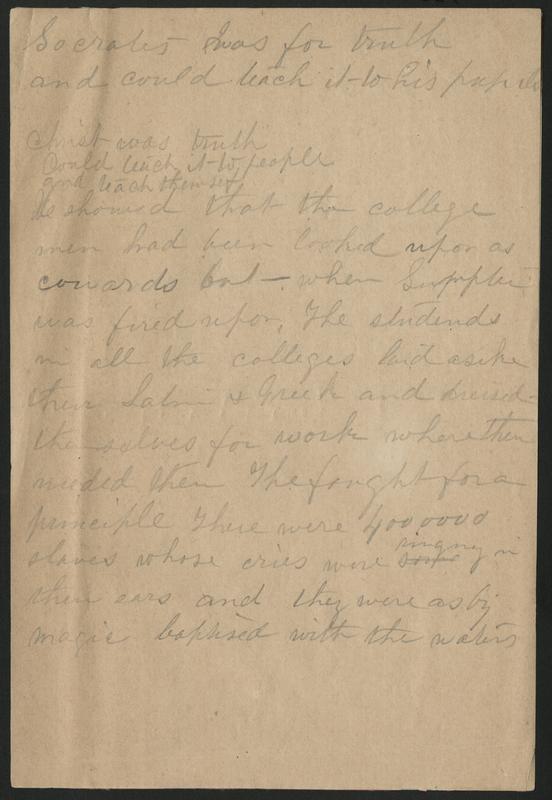 Socrates was for truth
and could teach it to his pupils
Christ was truth
Could teach it to people
and teach themself
He showed that the college
men had been looked upon as
cowards but - when Sumpter
was fired upon, The students
in all the colleges laid aside
their Latin & Greek and
themselves for work where then
needed then The fought for a
principle There were 4000000
slaves whose cries were ringing in
their ears and they were as by
magic baptised with the waters